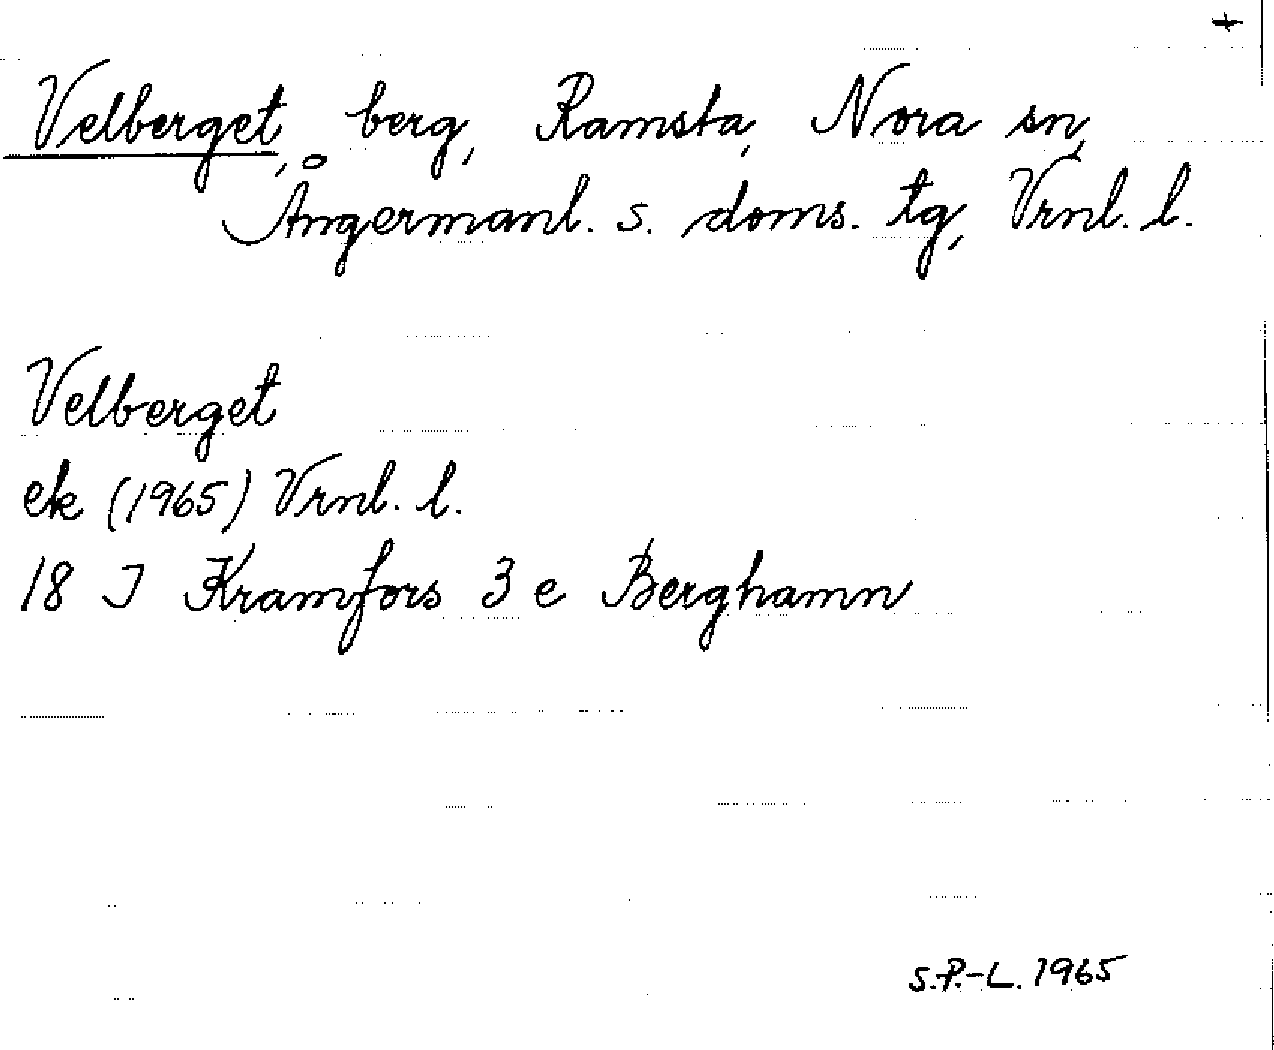 +
Velberget, berg, Ramsta, Nora sn,
Ångermanl. s. doms. tg, Vrnl. l.
Velberget
ek (1965) Vrnl. l.
18 J Kramfors 3 e Berghamn
S.P.-L. 1965